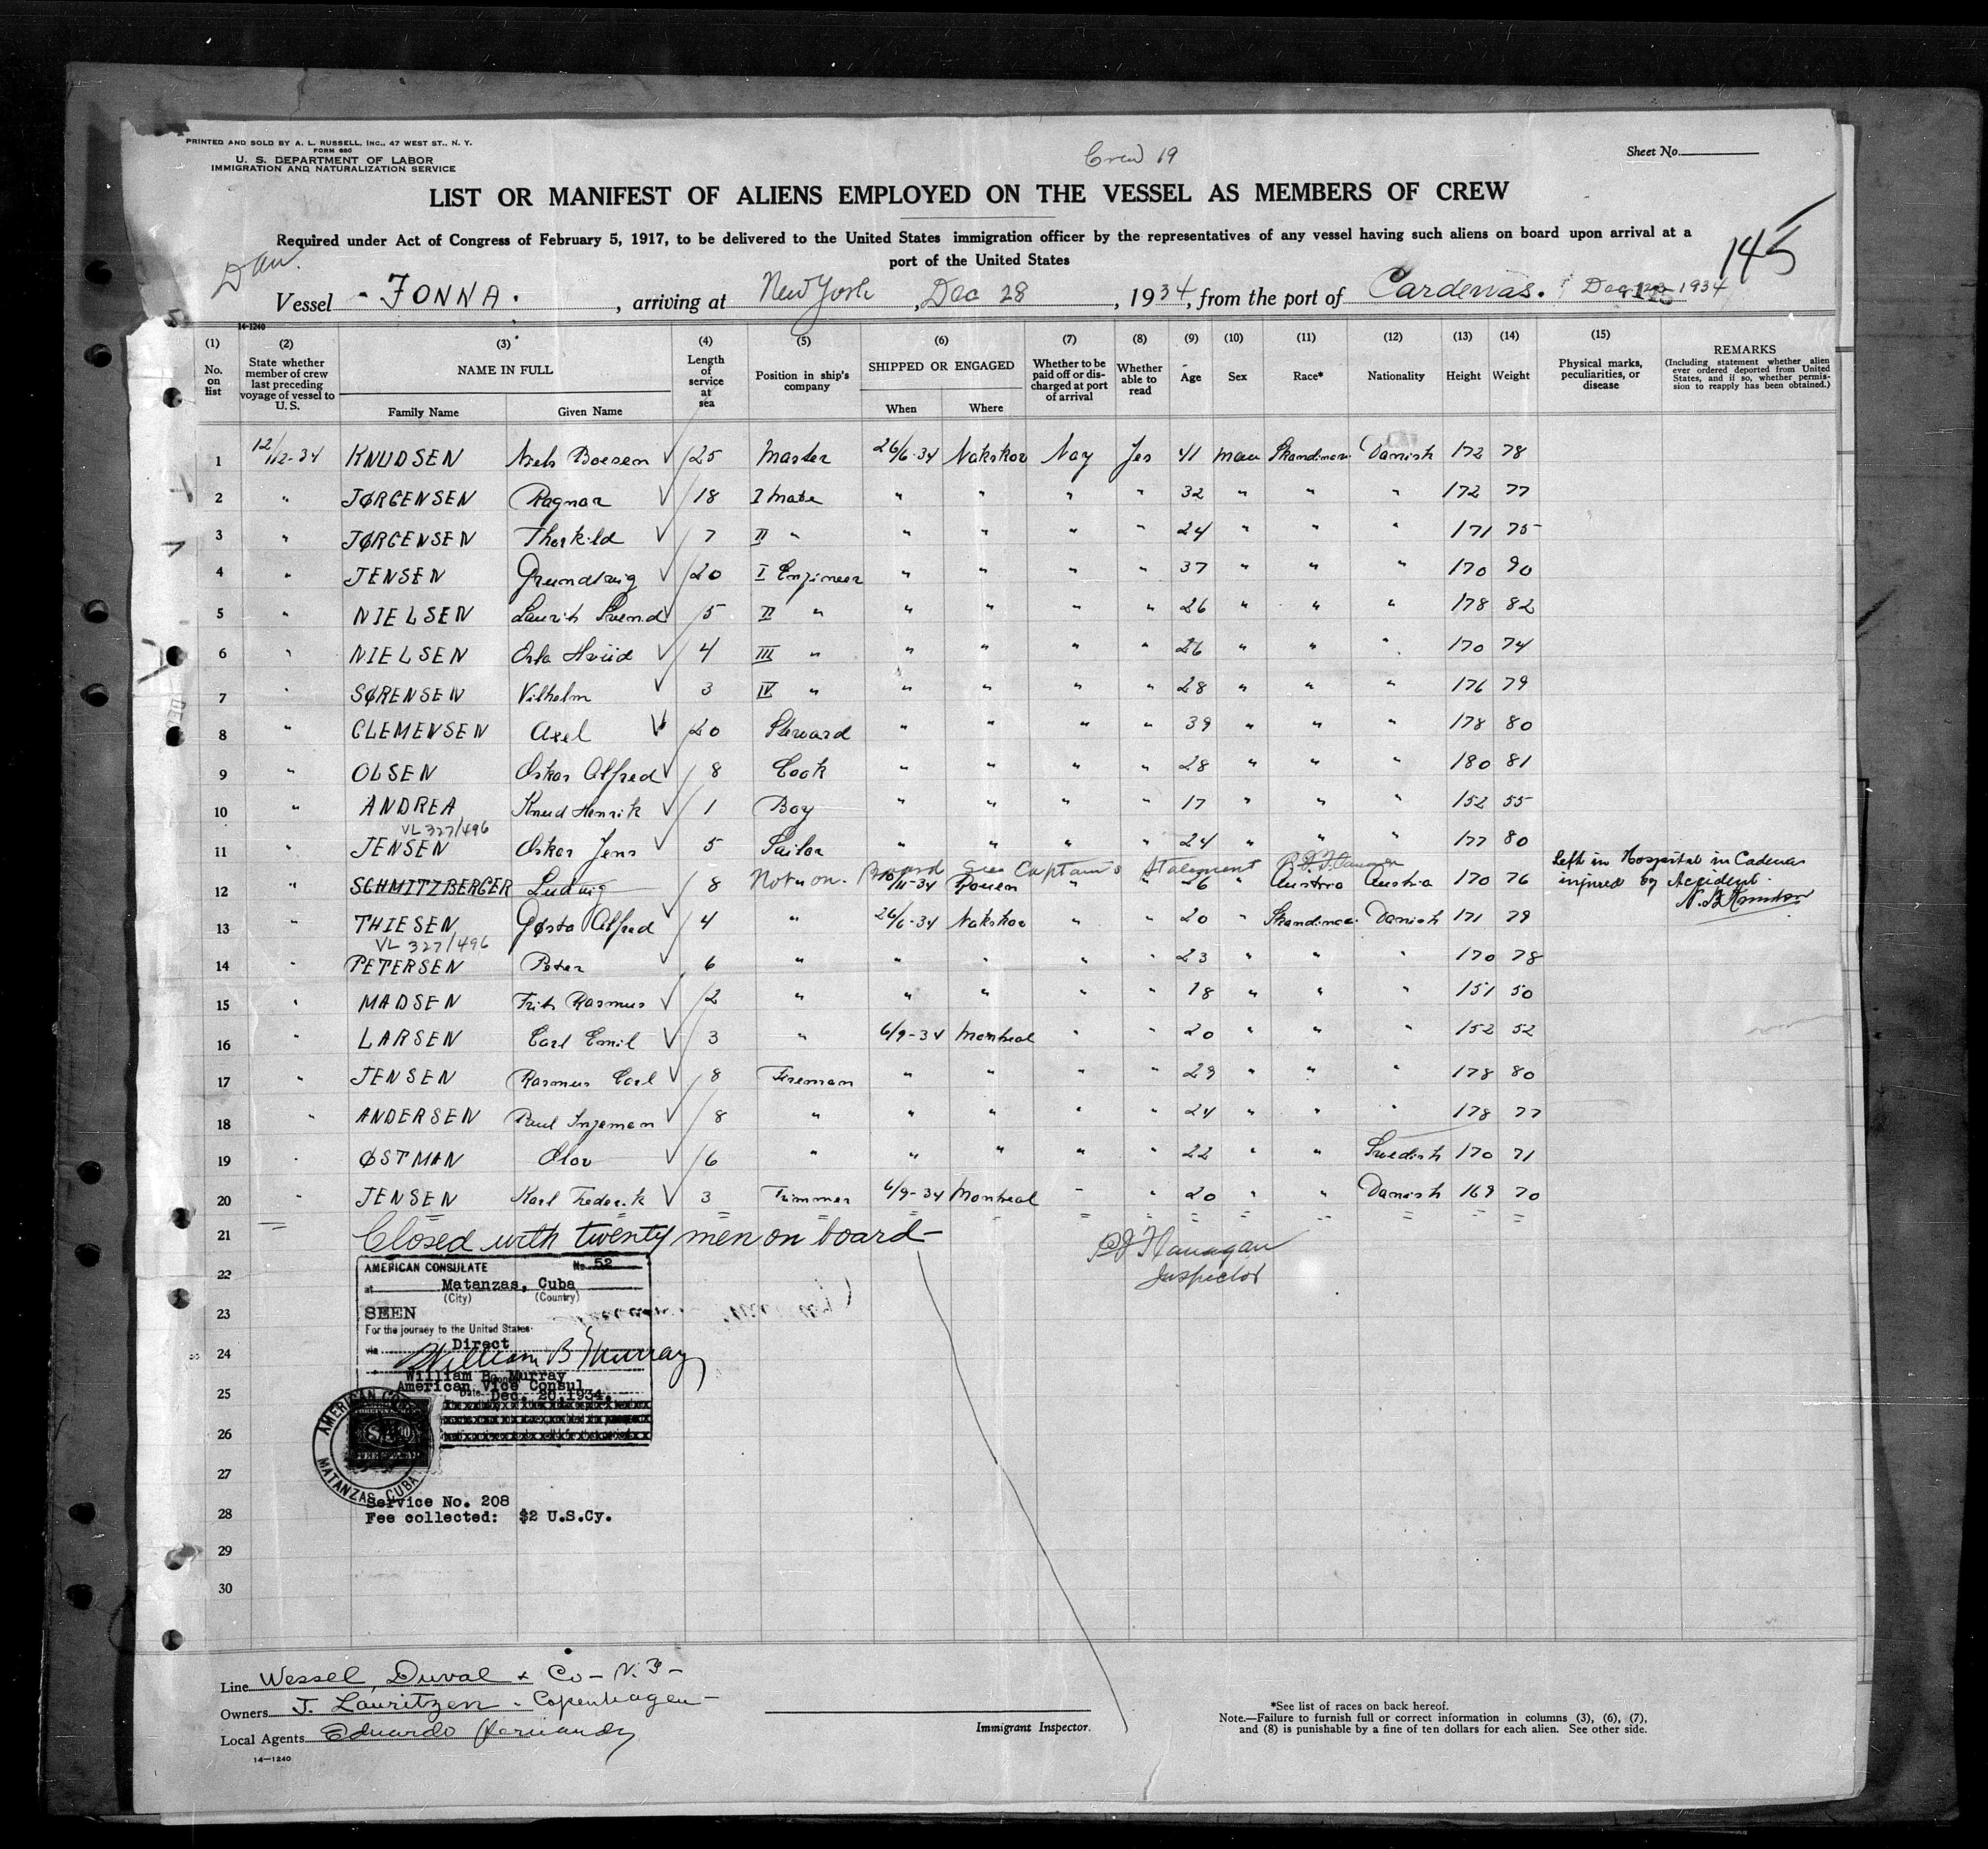 PRINTED AND SOLD BY A. L. RUSSELL, INC., 47 WEST ST., N. Y.
FORM 680
U. S. DEPARTMENT OF LABOR
IMMIGRATION AND NATURALIZATION SERVICE
Crew 19
Sheet No.
LIST OR MANIFEST OF ALIENS EMPLOYED ON THE VESSEL AS MEMBERS OF CREW
Required under Act of Congress of February 5, 1917, to be delivered to the United States immigration officer by the representatives of any vessel having such aliens on board upon arrival at a
port of the United States
145
Dan.
Vessel "JONNA", arriving at New York, Dec 28, 1934, from the port of Cardenas. Dec 1934
14-1240
(1) (2) (3) (4) (5) (6) (7) (8) (9) (10) (11) (12) (13) (14) (15)
No. on list
State whether member of crew last preceding voyage of vessel to U. S.
NAME IN FULL
Family Name Given Name
Length of service at sea
Position in ship's company
SHIPPED OR ENGAGED
When Where
Whether to be paid off or discharged at port of arrival
Whether able to read
Age Sex Race* Nationality Height Weight
Physical marks, peculiarities, or disease
REMARKS
(Including statement whether alien ever ordered deported from United States, and if so, whether permission to reapply has been obtained.)
1 12/12-34 KNUDSEN Niels Boesen √ 25 Master 26/6-34 Nakskov Nay Yes 41 man Skandinav. Danish 172 78
2 " JØRGENSEN Ragnar √ 18 I Mate " " " " 32 " " " 172 77
3 " JØRGENSEN Thorkild √ 7 II " " " " " 24 " " " 171 75
4 " JENSEN Grundtvig √ 20 I Engineer " " " " 37 " " " 170 90
5 " NIELSEN Laurits Svend √ 5 II " " " " " 26 " " " 178 82
6 " NIELSEN Orla Hviid √ 4 III " " " " " 26 " " " 170 74
7 " SØRENSEN Vilhelm √ 3 IV " " " " " 28 " " " 176 79
8 " CLEMENSEN Axel √ 20 Steward " " " " 39 " " " 178 80
9 " OLSEN Oskar Alfred √ 8 Cook " " " " 28 " " " 180 81
10 " ANDREA Knud Henrik √ 1 Boy " " " " 17 " " " 152 55
VL 327/496
11 " JENSEN Oskar Jens √ 5 Sailor " " " " 24 " " " 177 80
Not on Board See Captain's Statement
12 " SCHMITZBERGER Ludwig 8 " /11-34 Rouen " " 26 " Austria Austria 170 76 Left in Hospital in Cadenas
injured by Accident.
13 " THIESEN Gøsta Alfred √ 4 " 26/6-34 Nakskov " " 20 " Skandinav. Danish 171 79
VL 327/496
14 " PETERSEN Peter √ 6 " " " " " 23 " " " 170 78
15 " MADSEN Frits Rasmus √ 2 " " " " " 18 " " " 151 50
16 " LARSEN Carl Emil √ 3 " 6/9-34 Montreal " " 20 " " " 152 52
17 " JENSEN Rasmus Carl √ 8 Fireman " " " " 29 " " " 178 80
18 " ANDERSEN Paul Ingeman √ 8 " " " " " 24 " " " 178 77
19 " ØSTMAN Olov √ 6 " " " " " 22 " " Swedish 170 71
20 " JENSEN Karl Frederik √ 3 Trimmer 6/9-34 Montreal " " 20 " " Danish 169 70
21 Closed with twenty men on board
PJ Flanagan
Inspector
22
23
24
25
26
27
28
29
30
AMERICAN CONSULATE No. 52
at Matanzas, Cuba
(City) (Country)
SEEN
For the journey to the United States
via Direct
William B Murray
William B. Murray
American Vice Consul
Date Dec. 20, 1934.
AMERICAN CO
MATANZAS, CUBA
Service No. 208
Fee collected: $2 U.S.Cy.
Line Wessel, Duval & Co - N.Y-
Owners J. Lauritzen - Copenhagen-
Local Agents Eduardo
14—1240
Immigrant Inspector.
*See list of races on back hereof.
Note.—Failure to furnish full or correct information in columns (3), (6), (7),
and (8) is punishable by a fine of ten dollars for each alien. See other side.